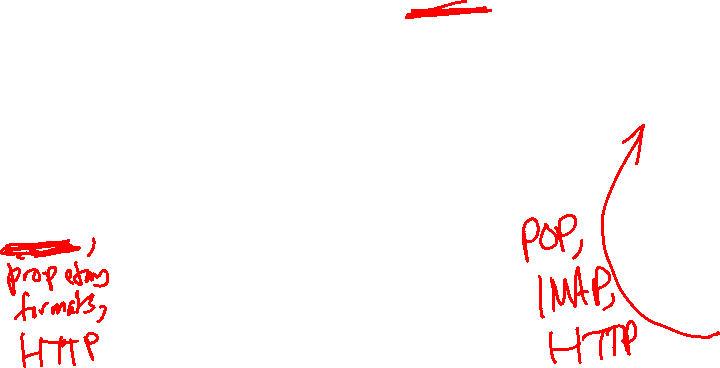 ,
propetary
formats,
HTTP
POP,
IMAP,
HTTP